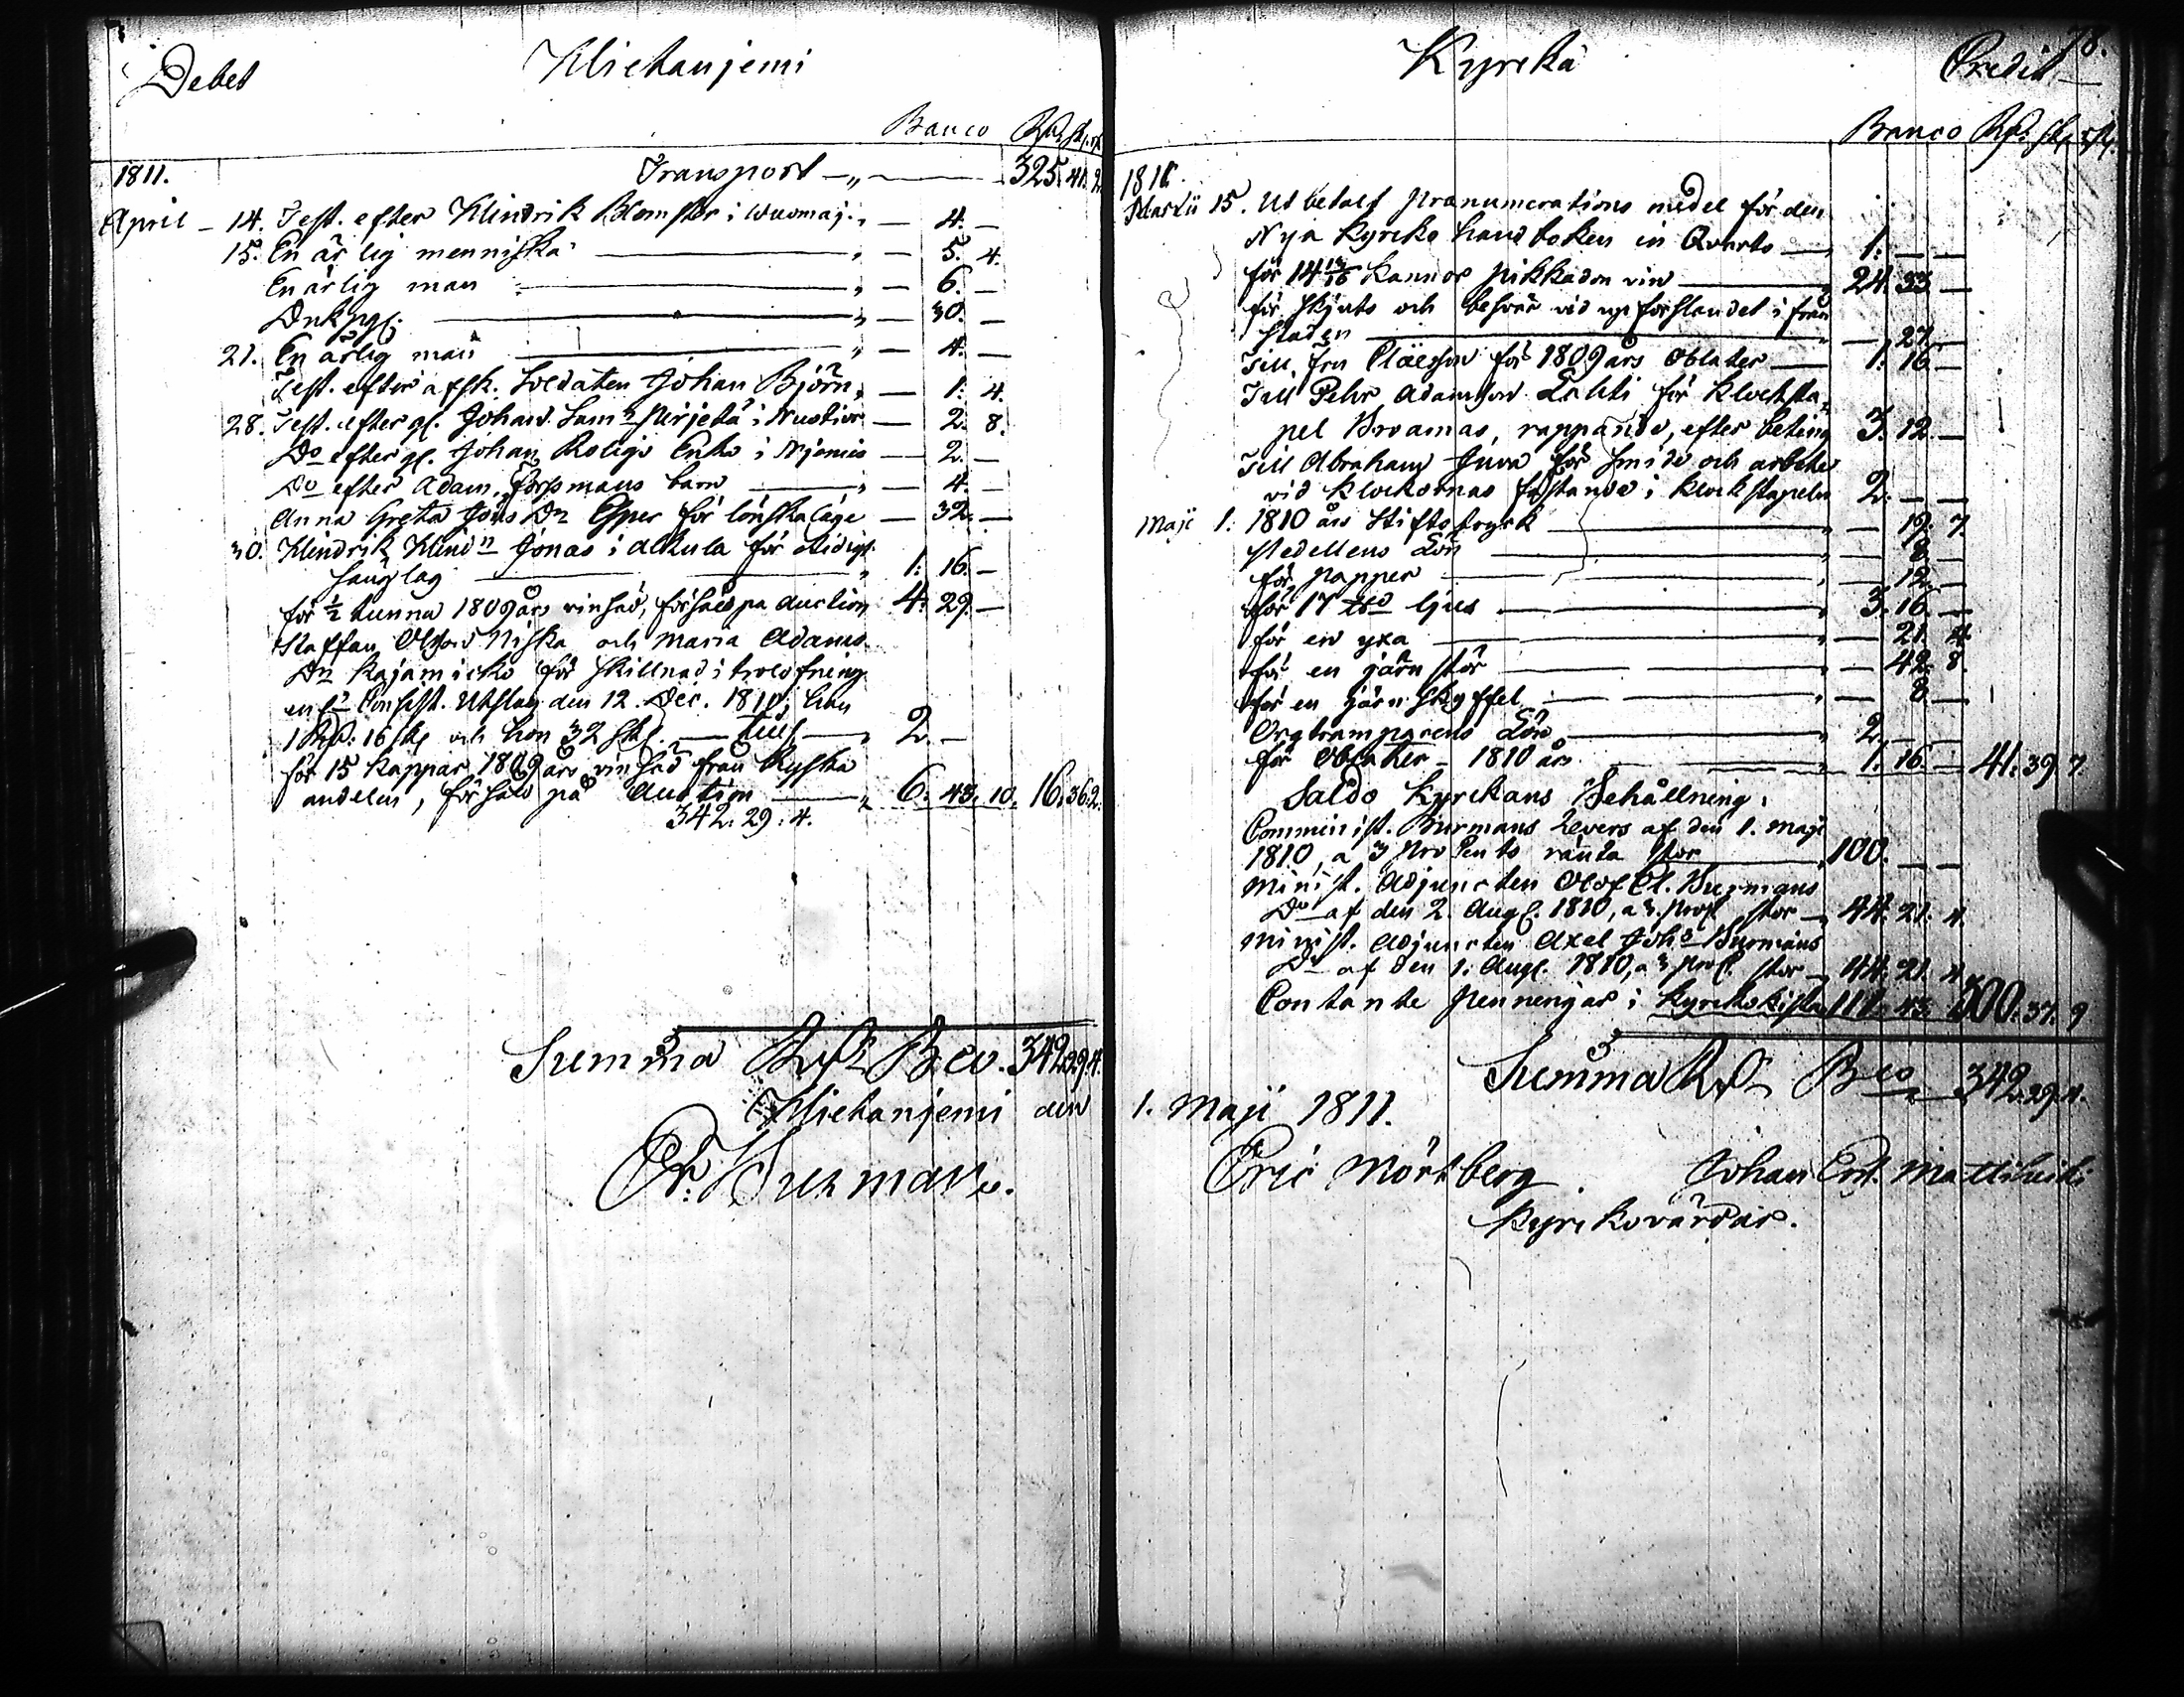 Debet Hietaniemi
Banco Rd. sk. r.
1811. Transport — 325. 41. 2.
April – 14. Test. efter Hindrik Blomster i Wuomaj. — 4. —
15. En ärlig menniska — 5. 4.
En ärlig man — 6. —
— 30. —
21. En ärlig man — 4. —
Test. efter afsk. Soldaten Johan Björn — 1. 4.
28. Test. efter gl. Johan — 2. 8.
Do efter gl. Johan Roligs Enka i Niemis — 2. —
Do efter Adam Forssmans barn — 4. —
Anna Greta Jöns Dr Esper för lönskaläge — 32. —
30. Hindrik Hindn Jonas i Alkula för otidigt
sänglag — 1. 16. —
för ½ tunna 1809 års vinsäd, försåld på Auction 4. 29. —
Staffan Olofsson Niska och Maria Adams
Dr Kajamicko för skillnad i trolofning
enl. Consist. Utslag den 12. Dec. 1810, han
1 Rd. 16 sk och hon 32 sk. — tills. — 2. —
för 15 kappar 1809 års vinsäd från Ryska
andelen, försåld på Auction — 6. 43. 10. 16. 36. 2.
342. 29. 4.
Summa Rd Bco. 342. 29. 4.
Hietaniemi den
Burman.
78.
Kyrka Credit
Banco Rd. sk. r.
1811.
Martii 15. Utbetalt pränumerations medel för den
Nya Kyrko handboken in Quarto — 1. — —
för 14 kannor pikkadon vin — 24. 33 —
för skjuts och besvär vid uppforslandet ifrån
staden — 27. —
Till fru Claësson för 1809 års Oblater — 1. 16. —
Till Pehr Adamsson Lahti för Klocksta-
pel Broarnas, rappande, efter beting 3. 12. —
Till Abraham Juva för smide och arbete
vid klockornas fästande i klockstapeln 2. — —
Maji 1. 1810 års Stiftstryck — 19. 7.
Pedellens Lön — 8. —
för papper — 12. —
för 17 ljus — 3. 16. —
för en yxa — 21. 4.
för en järn stör — 42. 8.
för en järn skyffel — 8. —
Orgtramparens Lön — 2. — —
för Oblater – 1810 års — 1. 16. — 41. 39. 7.
Saldo Kyrkans Behållning:
Comminist. Burmans Revers af den 1. Maji
1810, a 3 pro Cento ränta stor — 100. — —
Minist. Adjuncten Olof Burmans
Do af den 2. Aug. 1810, a 3. proC. stor — 44. 21. 4.
Minist. Adjuncten Axel Joh. Burmans
Do af den 1. Aug. 1810, a 3 proC. stor — 44. 21. 4
Contante penningar i Kyrkokista 111. 43. 300. 37. 9
Summa Rd Bco 342. 29. 4.
1. Maji 1811.
Eric Mörtberg Johan Er. Mattiheiki
Kyrkovärdar.